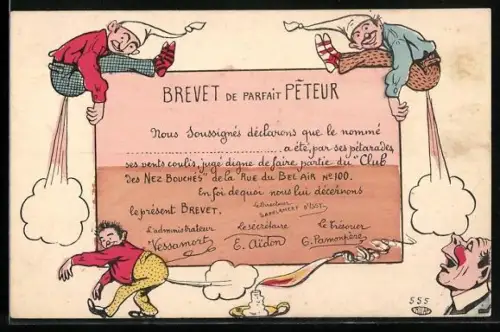 BREVET DE PARFAIT PÊTEUR
Nous Soussignés déclarons que le nommé
a été, par ses pétarades,
ses vents coulis, jugé digne de faire partie du "Club
des NEZ BOUCHÉS" de la RUE DU BEL AIR Nº 100.
En foi de quoi nous lui décernons
le présent BREVET.
Le Directeur
L'administrateur
Le secrétaire
le Trésorier
Vessamort
E. Aïdon
G. Pamonpère
555